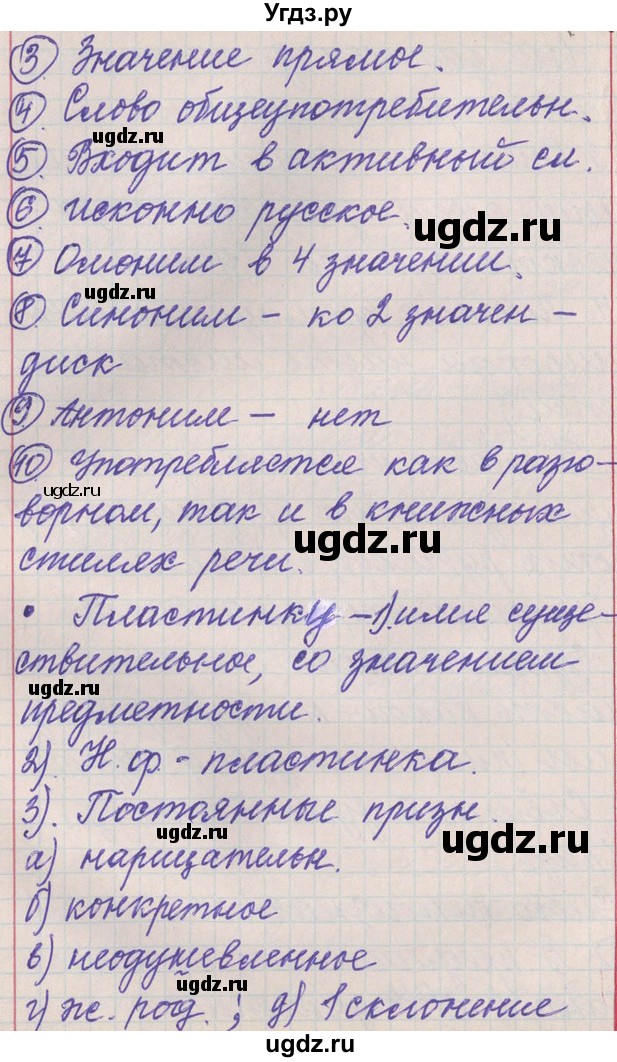 Угдз.ру
③ Значение прямое.
④ Слово общеупотребительн.
ugdz.ru
⑤ Входит в активный сл.
⑥ исконно русское.
ugdz.ru
⑦ Омоним в 4 значении.
ugdz.ru
⑧ Синоним – ко 2 значен –
диск
⑨ Антоним – нет
⑩ Употребляется как в разго-
ugdz.ru
ворном, так и в книжных
ugdz.ru
стилях речи.
• Пластинку – 1) имя суще-
ствительное, со значением
ugdz.ru
предметности.
2). Н.ф. - пластинка.
3). Постоянные призн.
ugdz.ru
ugdz.ru
а) нарицательн.
б) конкретное
в) неодушевленное
ugdz.ru
г) ж. род. ; д) 1 склонение
ugdz.ru